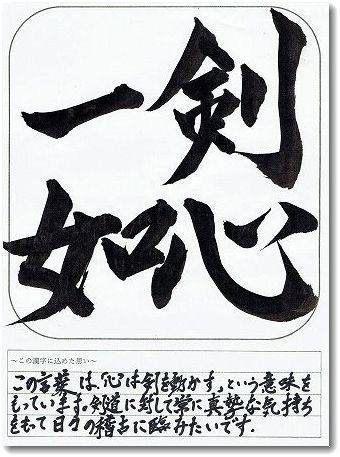 剣心
一如
～この漢字に込めた思い～
この言葉は、「心は剣を動かす」という意味を
もっています。剣道に対して常に真摯な気持ち
をもって日々の稽古に臨みたいです。